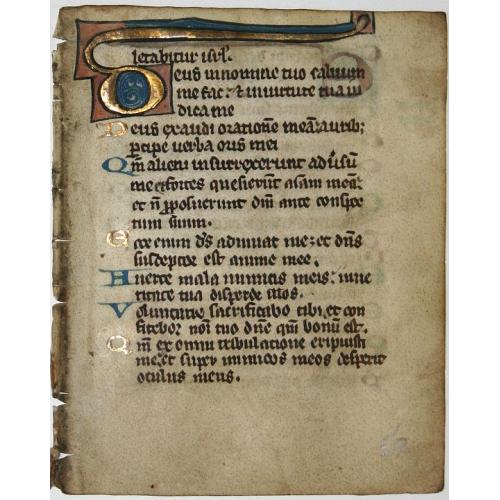 letabitur isrl.
Deus in nomine tuo saluum
me fac: & in uirtute tua iu
dica me
Deus exaudi oratione meā: aurib;
pcipe uerba oris mei
Qm̄ alieni insurrexerunt aduisū
me & fortes quesierūt aīam meā:
et n̄ pposuerunt dm̄ ante conspec
tum suum.
Ecce enim ds̄ adiuuat me: et dn̄s
susceptor est anime mee.
Auerte mala inimicis meis: in ue
ritate tua disperde illos.
Voluntarie sacrificabo tibi, et con
fitebor noī tuo dn̄e qm̄ bonū est.
Qm̄ ex omni tribulatione eripuisti
me: et super inimicos meos despexit
oculus meus.